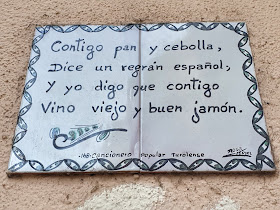 Contigo pan y cebolla,
Dice un regrán español;
Y yo digo que contigo
Vino viejo y buen jamón.
Cancionero Popular Turolense